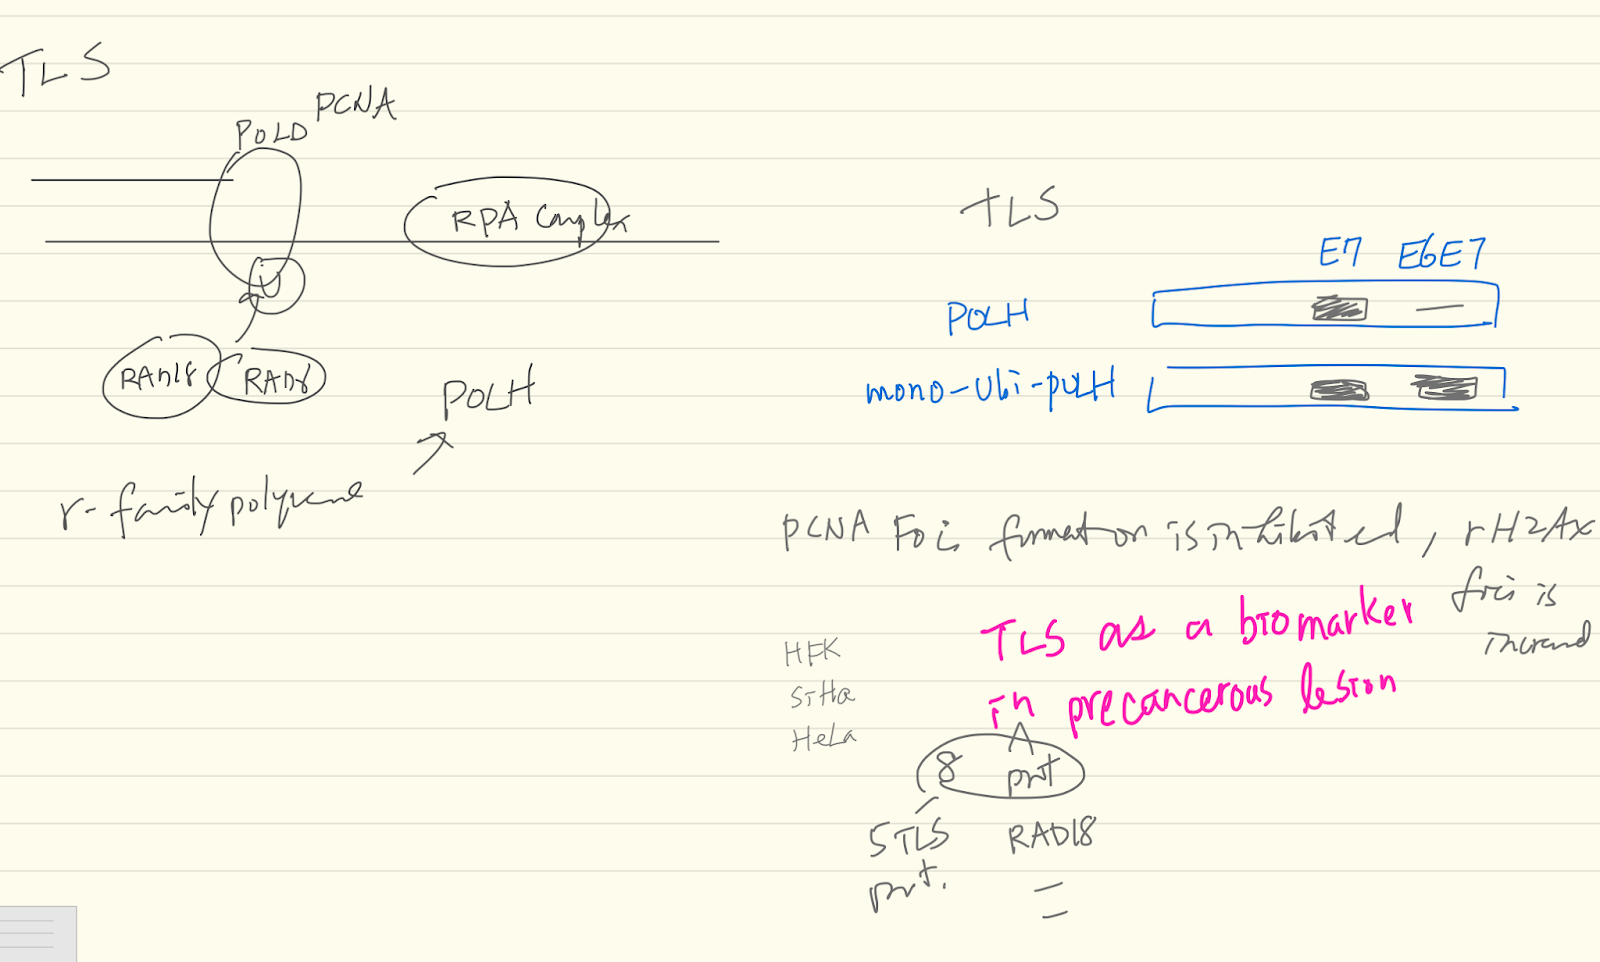 TLS
POLD PCNA
RPA Complex
U
RAD18 RAD6
POLH
r-family polymerase
TLS
E7 E6E7
POLH
mono-Ubi-polH
PCNA Foci formation is inhibited, rH2AX
foci is
increased
TLS as a biomarker
in precancerous lesion
HFK
SiHa
HeLa
8 prt
5 TLS RAD18
prt.